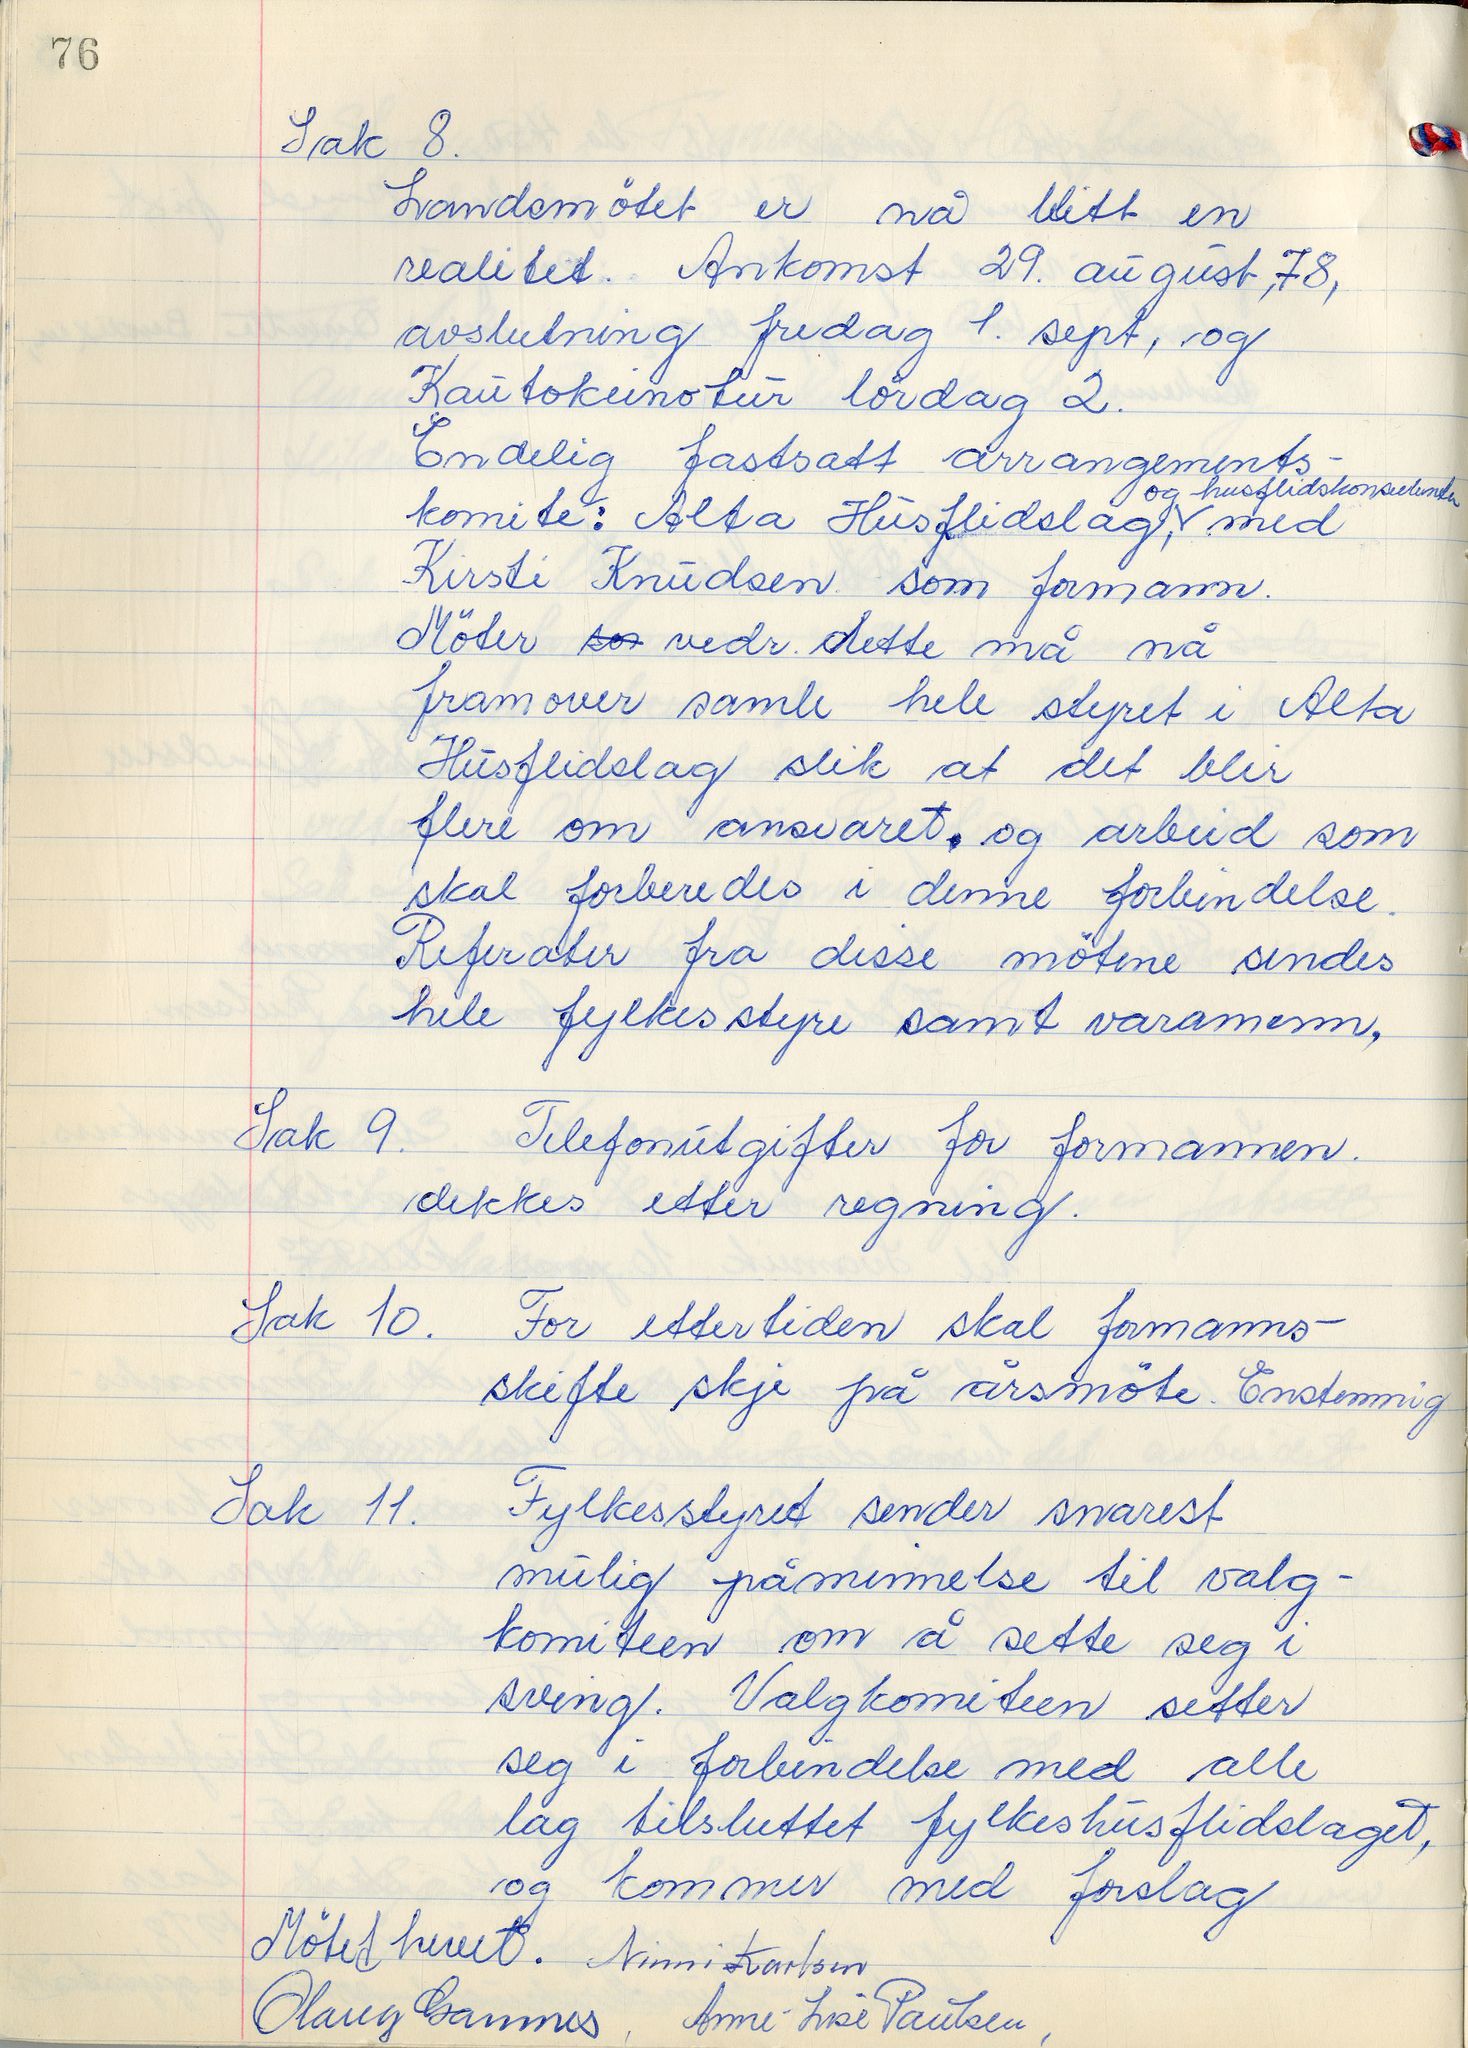 76
Sak 8.
Landsmötet er nå blitt en
realitet. Ankomst 29. august, 78,
avslutning fredag 1. sept, og
Kautokeinotur lördag 2.
Endelig fastsatt arrangements-
og husflidskonsulenten
komite: Alta Husflidslag, med
Kirsti Knudsen som formann.
Möter so vedr. dette må nå
framover samle hele styret i Alta
Husflidslag slik at det blir
flere om ansvaret. og arbeid som
skal forberedes i denne forbindelse.
Referater fra disse mötene sendes
hele fylkesstyre samt varamenn.
Sak 9. Telefonutgifter for formannen.
dekkes etter regning.
Sak 10. For ettertiden skal formanns-
skifte skje på årsmöte. Enstemmig
Sak 11. Fylkesstyret sender snarest
mulig påminnelse til valg-
komiteen om å sette seg i
sving. Valgkomiteen setter
seg i forbindelse med alle
lag tilsluttet fylkeshusflidslaget,
og kommer med forslag
Mötet hevet. Ninni Karlsen
Olaug Gamnes, Anne-Lise Paulsen,